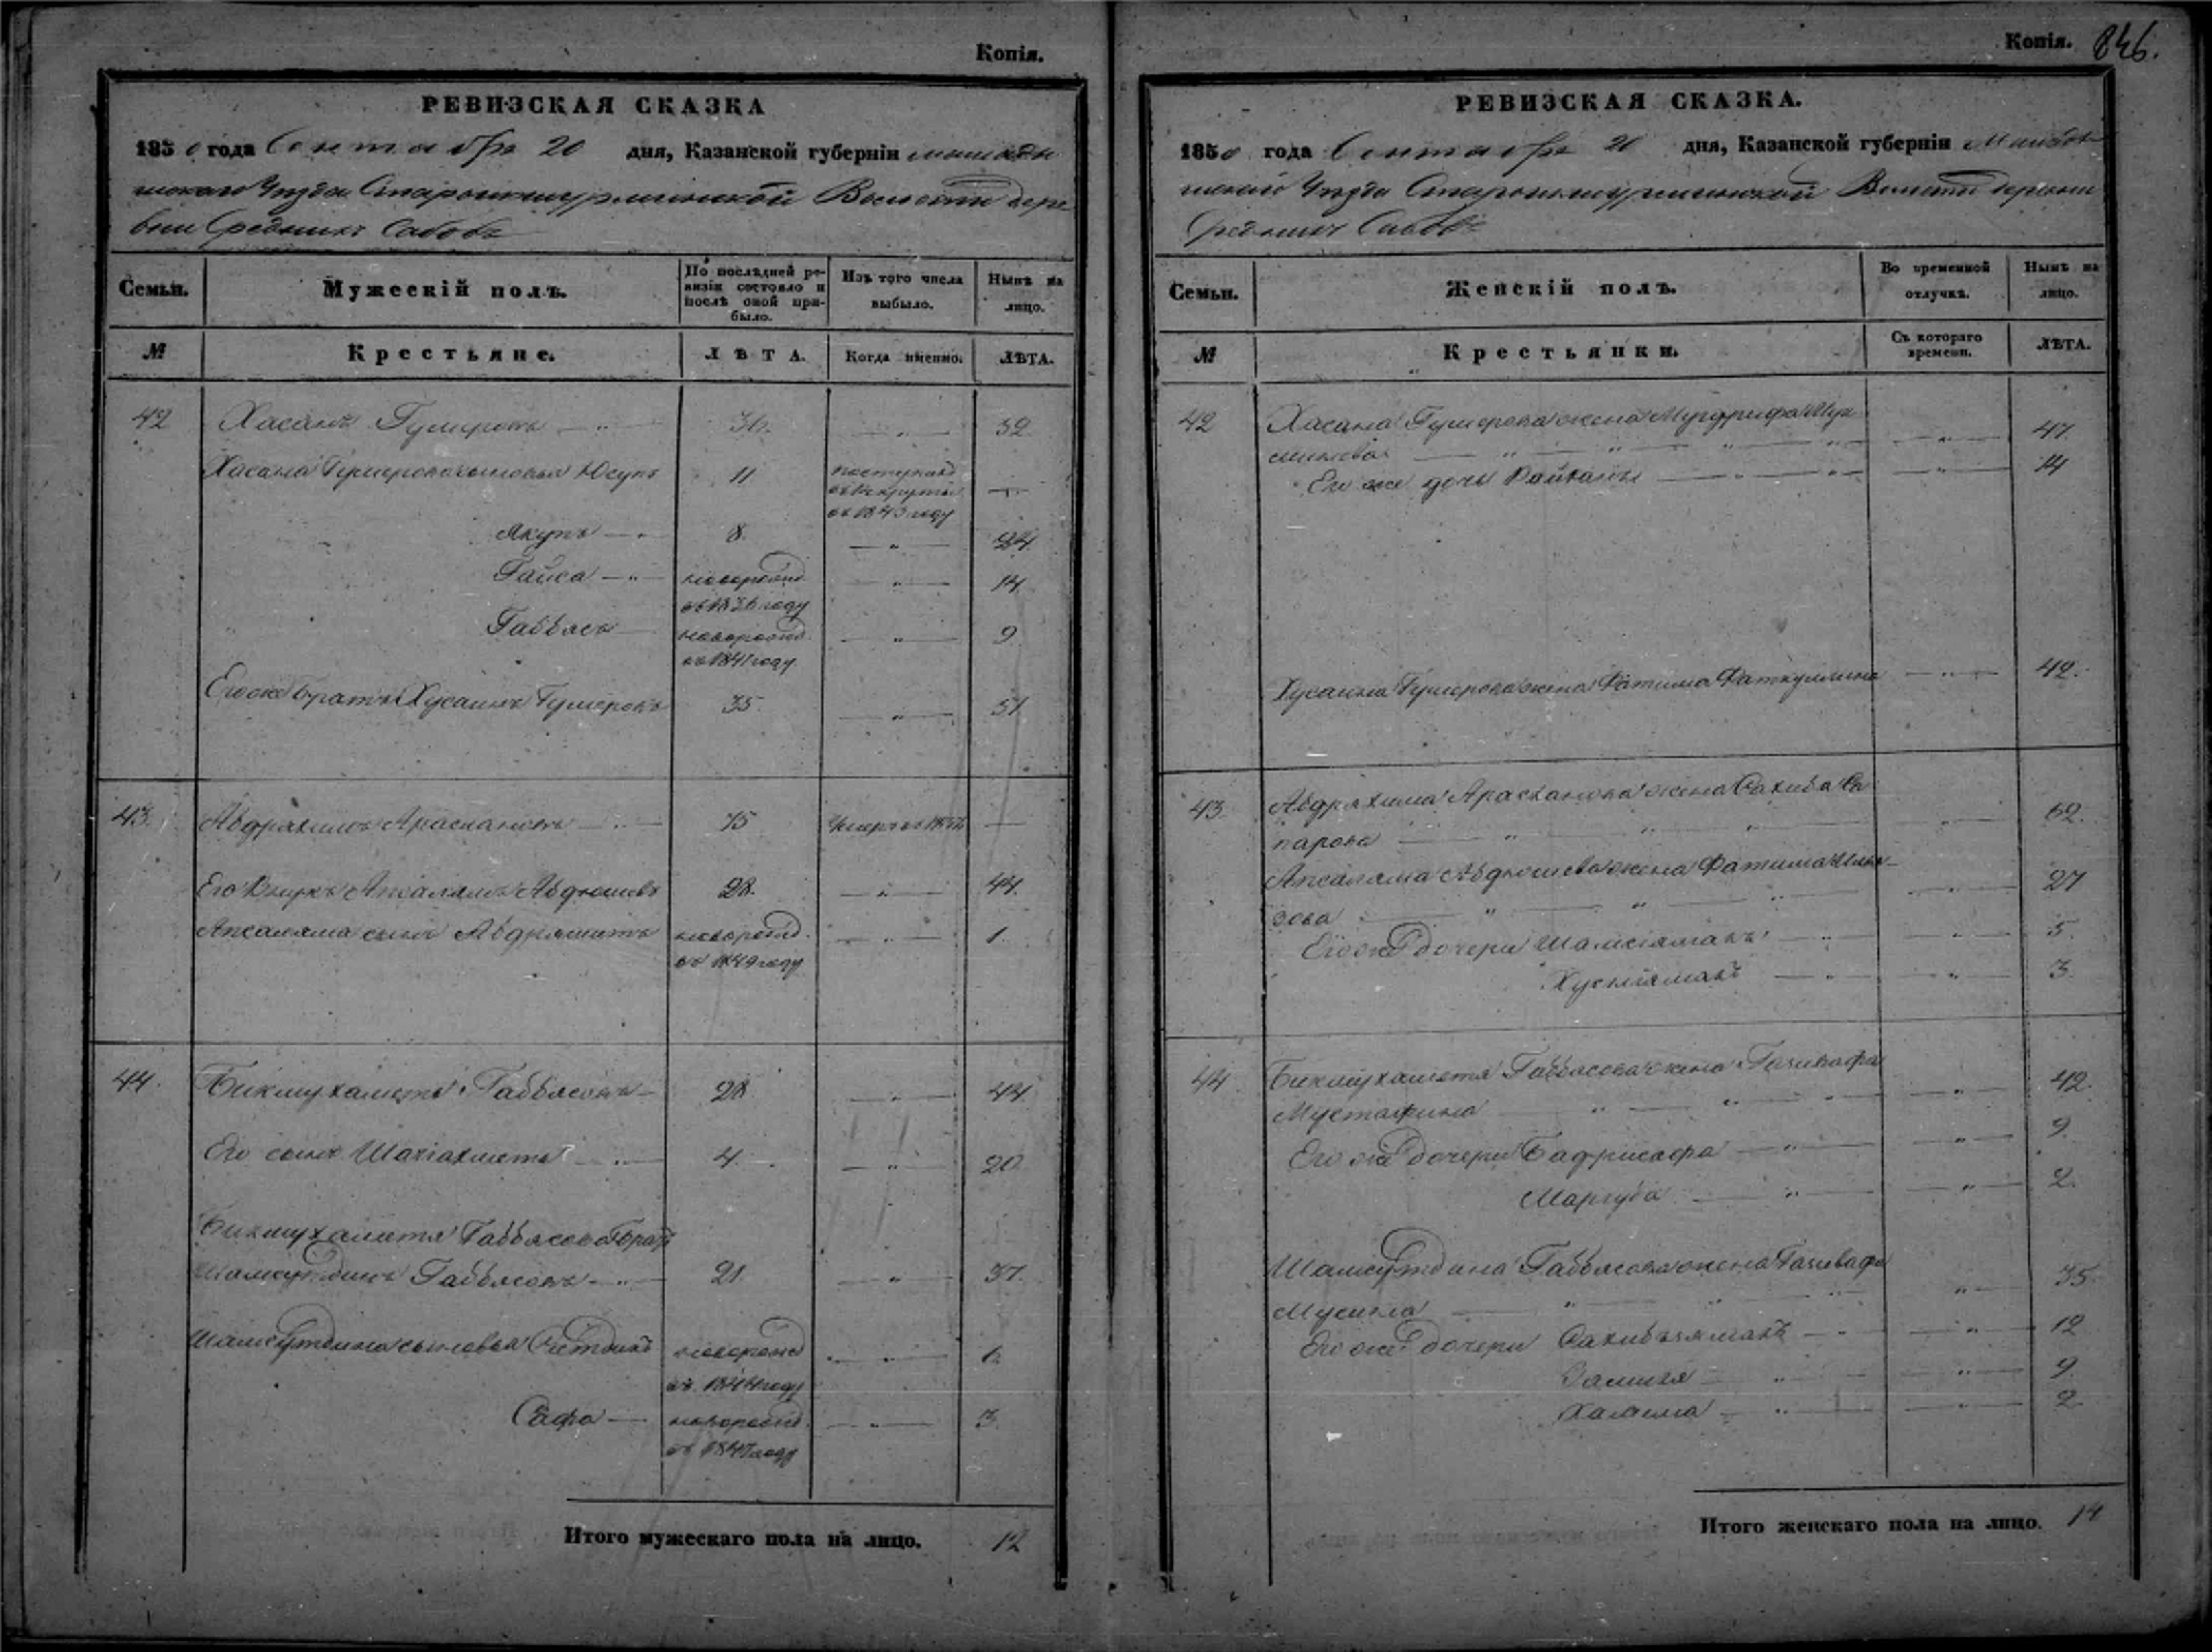 Копія.
РЕВИЗСКАЯ СКАЗКА
1850 года Сентября 20 дня, Казанской губерніи мамады
шскаго Уезда Волости дере
вни Среднихъ Сабовъ
Семьи.
Мужескій полъ.
По последней ре-
визіи состояло и
после оной при-
было.
Изъ того числа
выбыло.
Ныне на
лицо.
№
Крестьяне.
ЛѢТА.
Когда именно.
ЛѢТА.
42 Хасанъ Гумеровъ 36 52
Хасана Гумерова сыновья Юсупъ 11 поступилъ
въ рекруты
въ 1843 году
Якупъ 8. 24
Гайса новорожд 14
въ 1836 году
Габбясъ новорожд. 9
въ 1841 году
Его же братъ Хусаинъ Гумеровъ 35 51
43 Абдряхимъ Арслановъ 75
Его внукъ Апсалямъ Абдюшевъ 28. 44.
Апсаляма сынъ Абдряшитъ новорожд. 1.
въ 1849 году
44. Бикмухаметъ Габбясовъ 28 44
Его сынъ Шагіахметъ 4. 20
Бикмухаметя Габбясова братъ
Шамсутдинъ Габбясовъ 21 37.
Шамсутдина сыновья новорожд 6
въ 1844 году
Сафа новорожд. 3.
въ 1847 году
Итого мужескаго пола на лицо. 12
Копія. 846.
РЕВИЗСКАЯ СКАЗКА.
1850 года Сентября 20 дня, Казанской губерніи Мамады
шскаго Уезда Волости деревни
Среднихъ Сабовъ
Семьи.
Женскій полъ.
Во временной
отлучкѣ.
Нынѣ на
лицо.
№
Крестьянки.
Съ котораго
времени.
ЛѢТА.
42 Хасана Гумерова жена 47.
Его же дочь 14
Хусаина Гумерова жена Фатима Фаткуллина 42.
43. Абдряхима Арсланова жена Сахиба Са
парова 62.
Апсаляма Абдюшева жена Фатима Илья
зова 27
Его же дочери Шамсіямалъ 5.
Хусніямалъ 3.
44. Бикмухаметя Габбясова жена
Мустафина 42.
Его же дочери Бадрисафа 9.
Маргуба 2.
Шамсутдина Габбясова жена
Мусина 35.
Его же дочери Сахибзямалъ 12
9.
Халима 2
Итого женскаго пола на лицо. 14